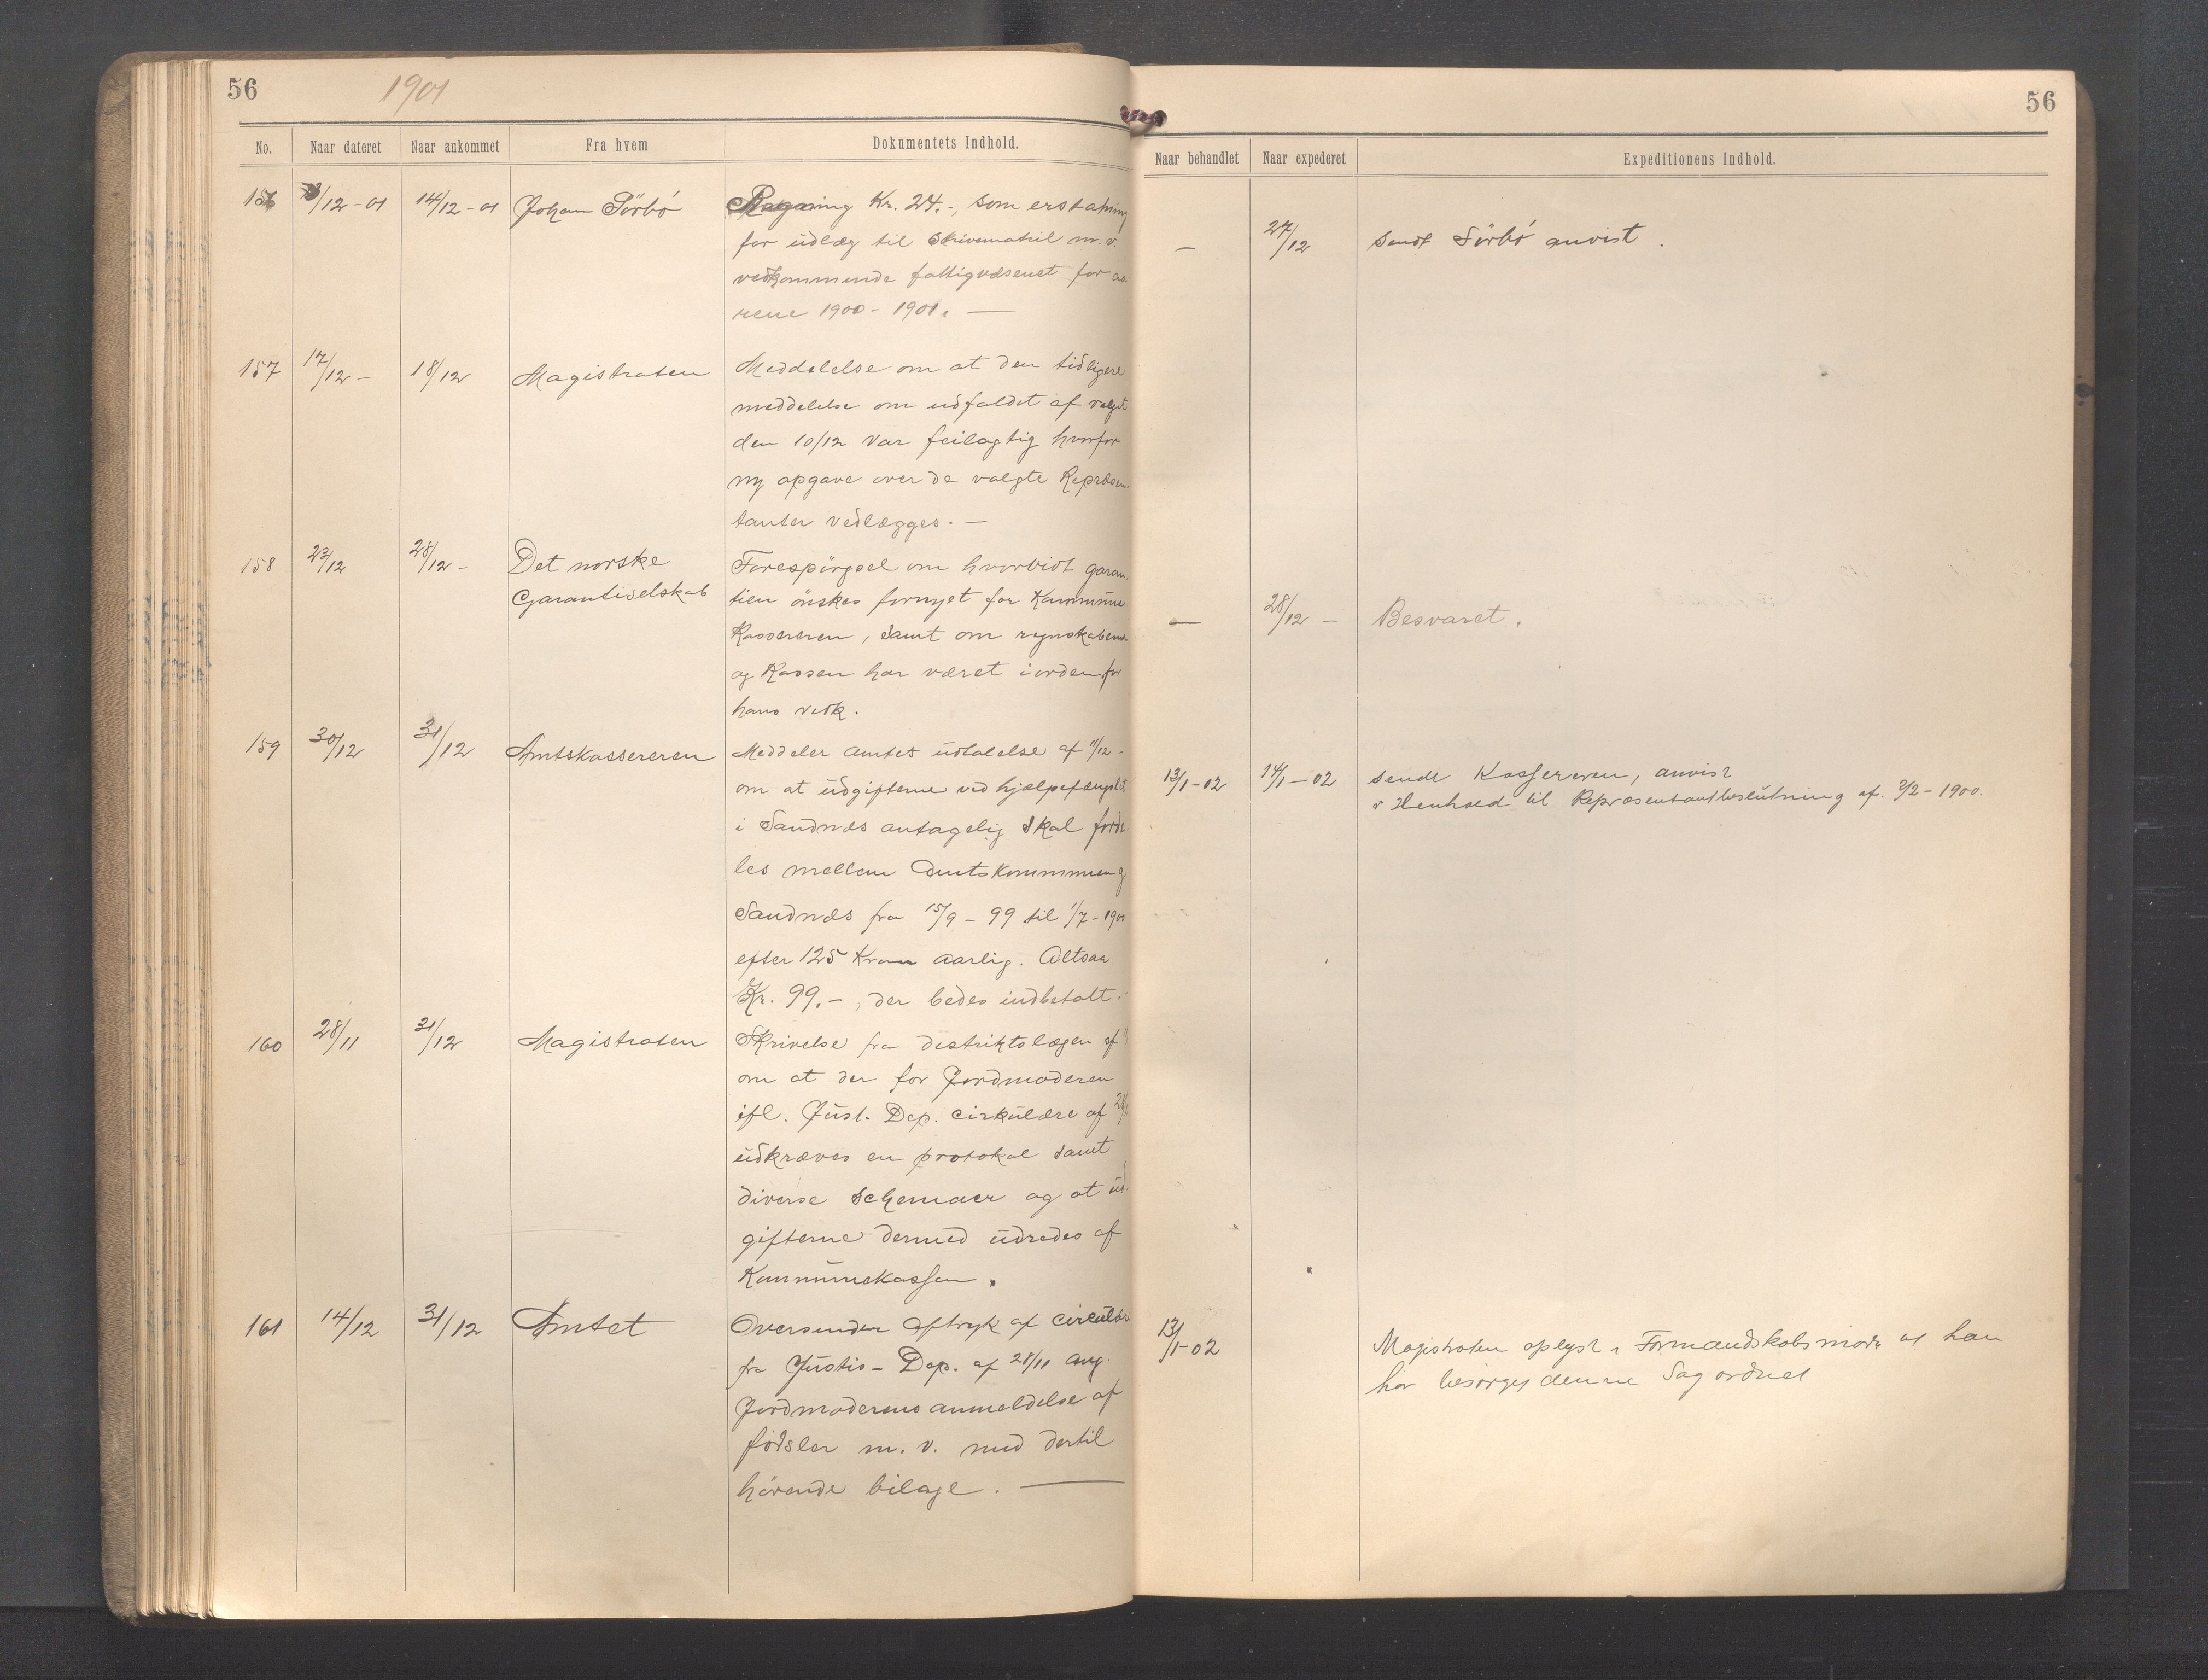 56
1901
No.
Naar dateret
Naar ankommet
Fra hvem
Dokumentets Indhold.
156
/12-01
14/12-01
Johan Sörbó
Regning Kr. 24.-, som erstatning
for üdlæg til skrivematriel m.v.
vedkommende fattigvæsenet for aa
rene 1900-1901. —
157
17/12 -
18/12
Magistraten
Meddelelse om at den tidligere
meddelelse om udfaldet af valget
den 10/12 var feilagtig hvorfor
ny opgave over de valgte Repræsen-
tanter vedlægges. —
158
23/12
28/12 -
Det norske
Garantiselskab
Forespörgsel om hvorvidt garan-
tien önskes fornyet for Kommüne
Kassereren, samt om regnskaberne
og Kassen har været iorden for
hans vedk.
159
30/12
31/12
Amtskassereren
Meddeler amtets üdtalelse af 11/12 -
om at üdgifterne ved hjælpefængslet
i Sandnæs antagelig skal forde-
les mellem Amtskommunen og
Sandnæs fra 15/9 - 99 til 1/7 - 1901
efter 125 Kroner aarlig. Altsaa
Kr. 99.-, der bedes indbetalt.
160
28/11
31/12
Magistraten
Skrivelse fra distriktslægen af
om at der for Jordmoderen
ifl. Just. Dep. cirkülære af
üdkræves en protokol samt
diverse schemaer og at üd-
gifterne dermed üdredes af
Kommünekassen.
161
14/12
31/12
Amtet
Oversender aftryk af circülære
fra Jüstis - Dep. af 28/11 ang.
Jordmoderens anmeldelse af
födsler m. v. med dertil
hörende bilage. —
56
Naar behandlet
Naar expederet
Expeditionens Indhold.
—
27/12
Sendt Sörbó anvist.
—
28/12 -
Besvaret.
13/1-02
14/1-02
sendt Kassereren, anvist
i Henhold til Repræsentantbeslutning af 2/2 - 1900.
13/1-02
Magistraten oplyst i Formandskabsmøde at han
har besørget denne Sag ordnet